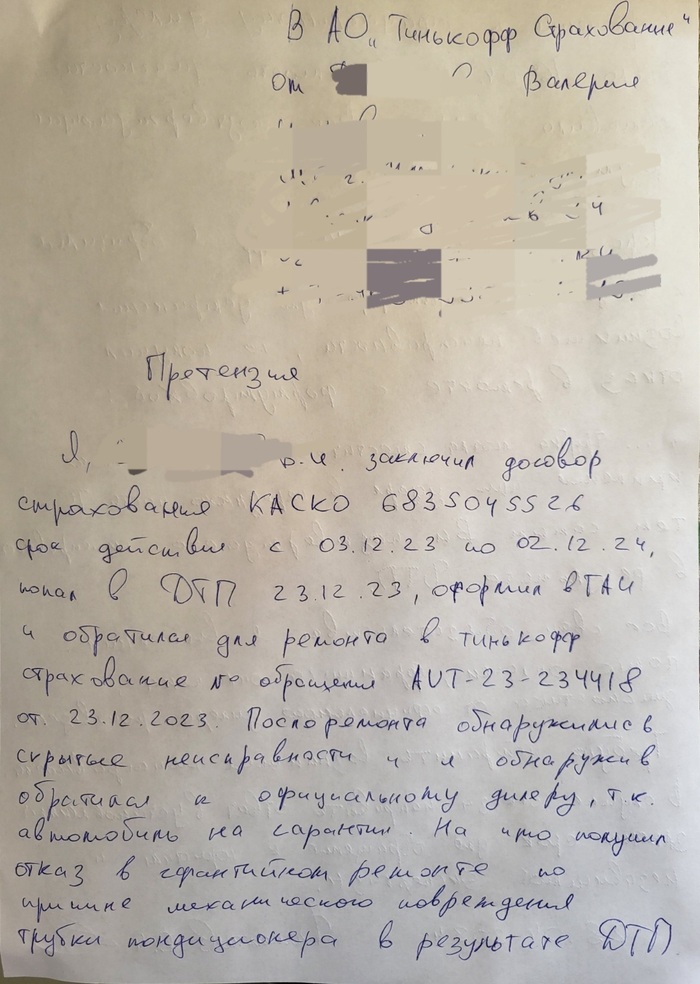 В АО „Тинькофф Страхование"
От Валерия
Претензия
Я, заключил договор
страхования КАСКО 6835045526
срок действия с 03.12.23 по 02.12.24,
попал в ДТП 23.12.23, оформил в ГАИ
и обратился для ремонта в тинькофф
страхование № обращения AUT-23-234418
от. 23.12.2023. После ремонта обнаружились
скрытые неисправности и я обнаружив
обратился к официальному дилеру, т.к.
автомобиль на гарантии. На что получил
отказ в гарантийном ремонте по
причине механического повреждения
трубки кондиционера в результате ДТП